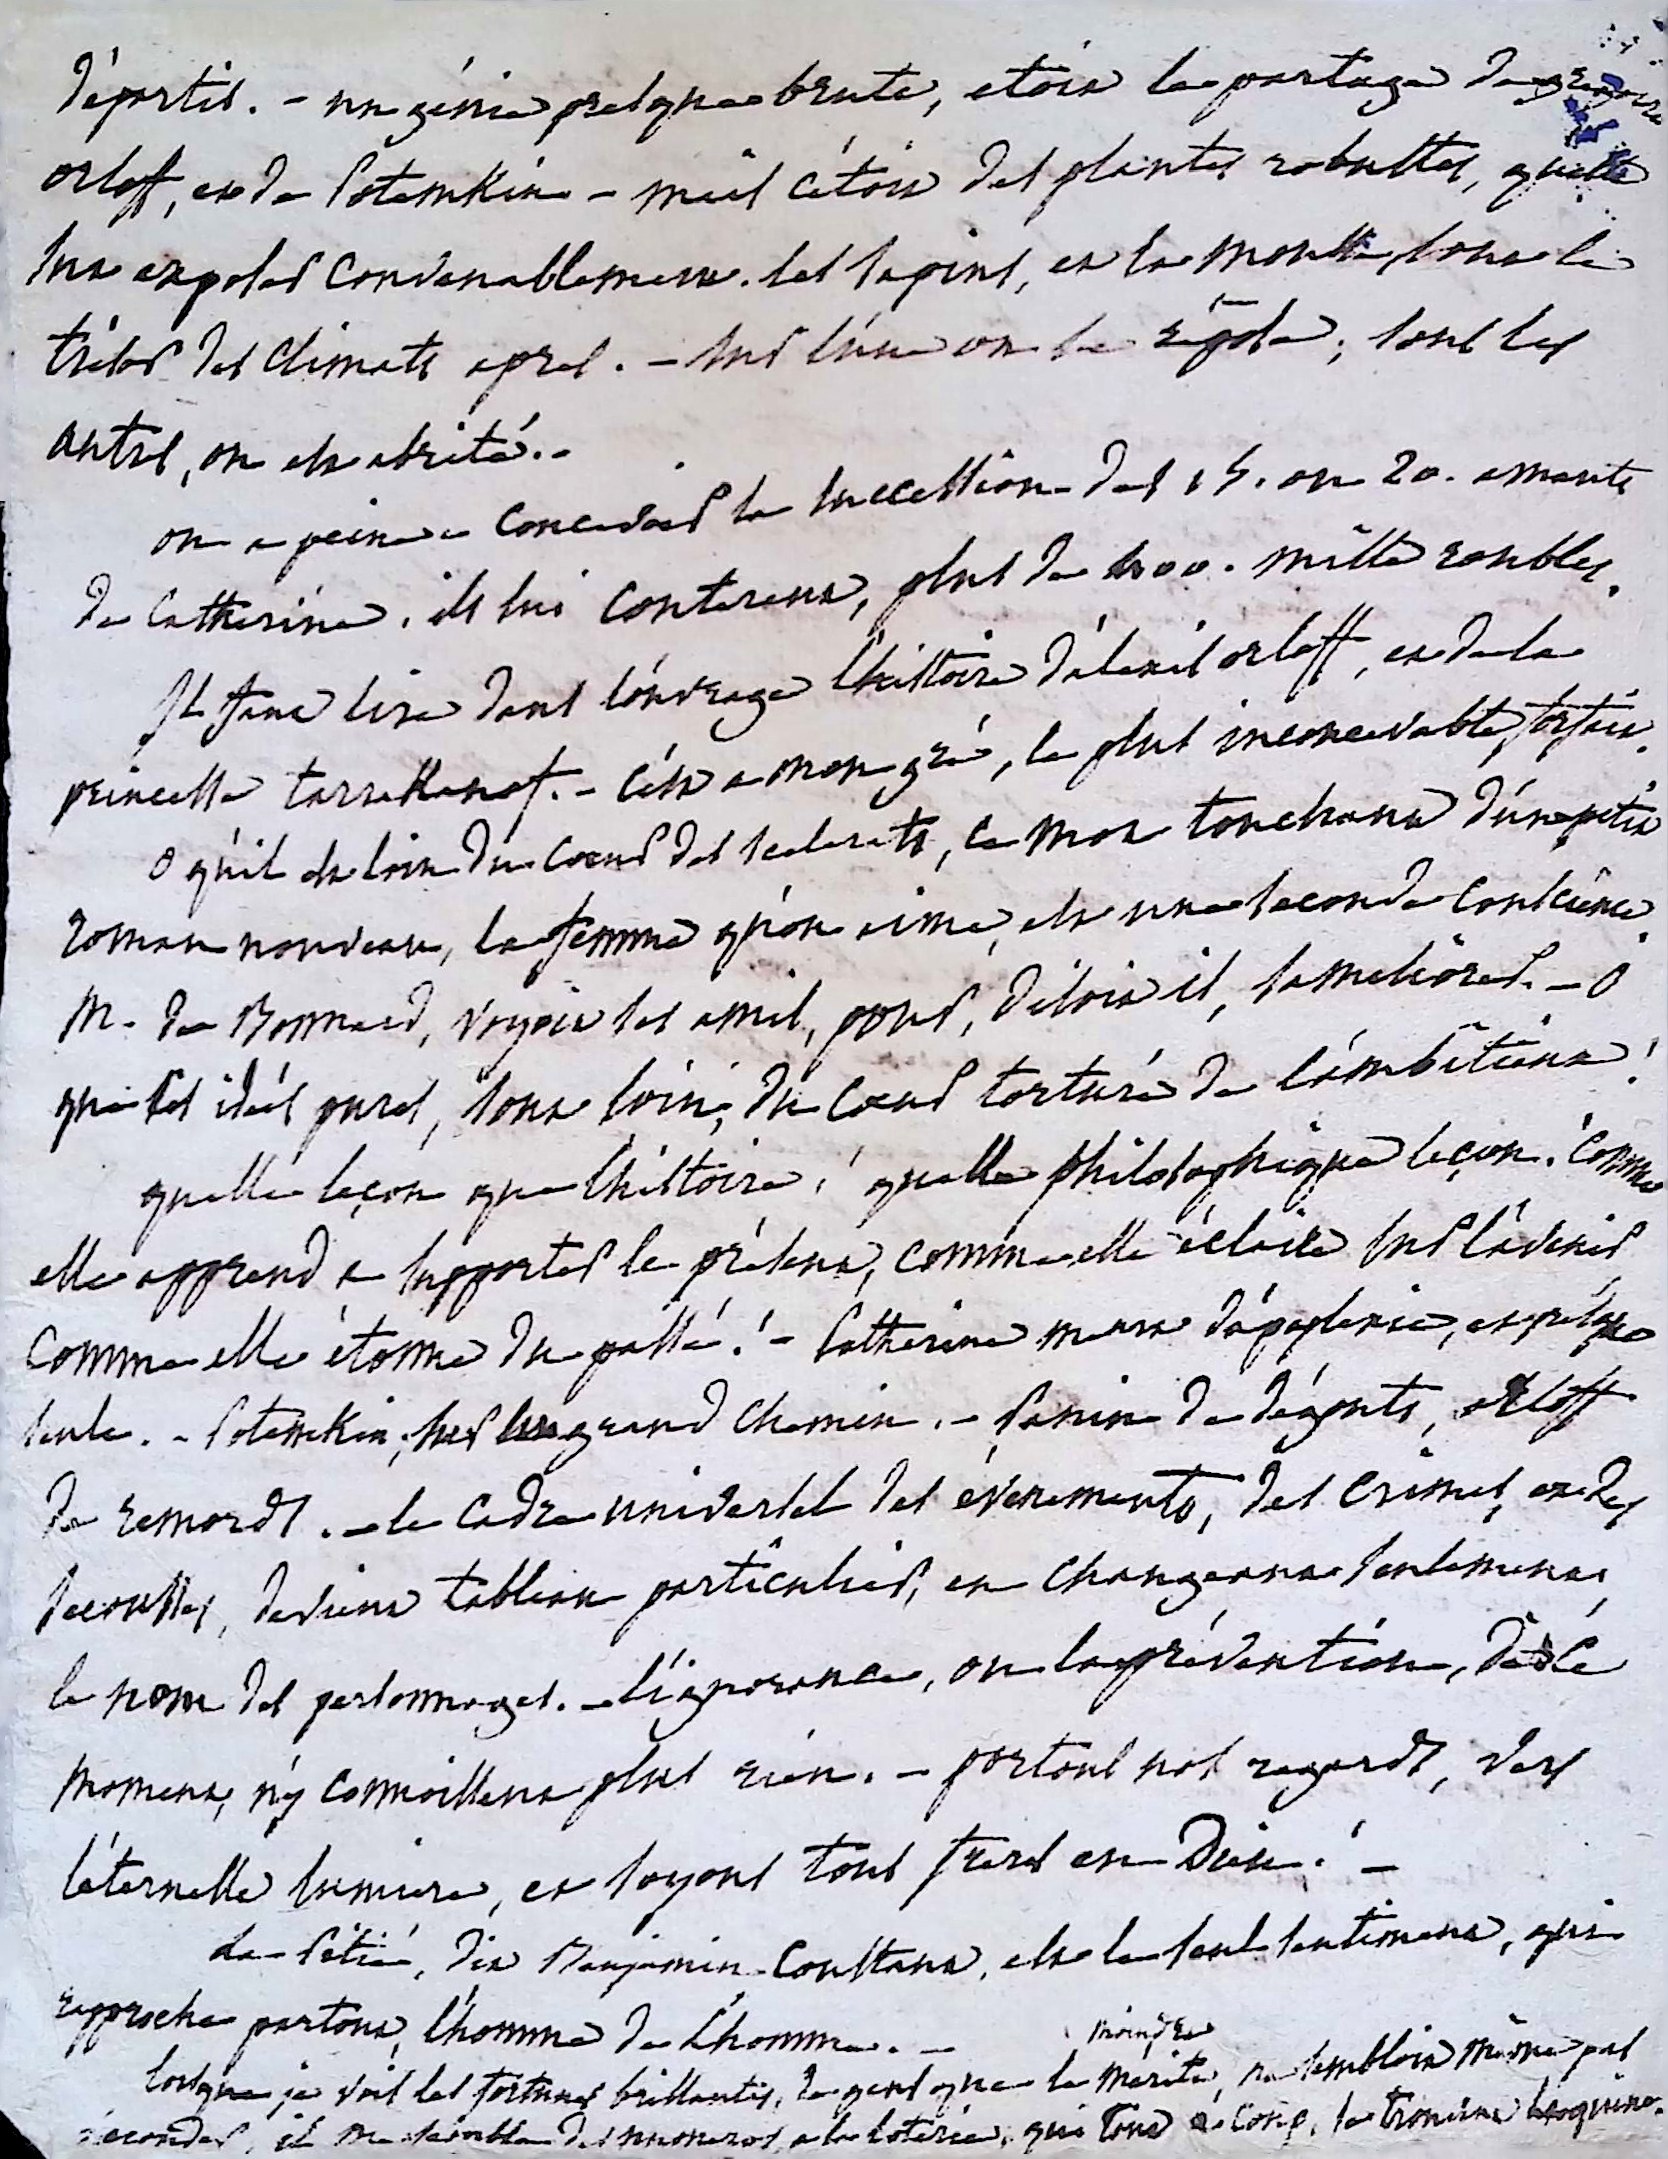 départis. - un génie presque brute, etoit le partage de gregoire
orloff, et de Potemkin - mais c'étoit des plantes robustes, qu'elle
sut exposer convenablement. les sapins, et la mousse, sont le
trésor des climats apres. - sur l'une on se repose; sous les
autres, on est abrité. -
on a peine a concevoir la succession des 15. ou 20. amants
de Catherine. ils lui couterent, plus de 400. mille roubles.
Il faut lire dans l'ouvrage l'histoire d'alexis orloff, et de la
princesse tarrakanof. - c'est a mon gré, le plus inconcevable forfait.
o qu'il est loin du coeur des scelerats, ce mot touchant d'un petit
roman nouveau, la femme qu'on aime, est une seconde conscience.
M. de Bonnard, voyoit ses amis, pour, disoit il, s'ameliorer. - o
que ces idées pures, sont loin, du coeur torturé de l'ambitieux!
quelle leçon que l'histoire! quelle philosophique leçon! comme
elle apprend a supporter le présent, comme elle éclaire sur l'avenir
comme elle étonne du passé! - Catherine meurt d'apoplexie, et presque
seule. - Potemkin, sur un grand chemin. - Panin de dégouts, orloff
de remords. - le cadre universel des évenements, des crimes, et des
secousses, devient tableau particulier, en changeant seulement,
le nom des personnages. - l'ignorance, ou la prévention, dès le
moment, n'y connoissent plus rien. - portons nos regards, vers
l'éternelle lumiere, et soyons tous freres en Dieu! -
la Pitié, dit Benjamin Constant, est le seul sentiment, qui
rapproche partout, l'homme de l'homme. -
moindre
lorsque je vois les fortunes brillantes, de gens que le mérite, ne sembloit même pas
seconder, il me semble des numeros, a la loterie, qui tout a coup, se trouvent